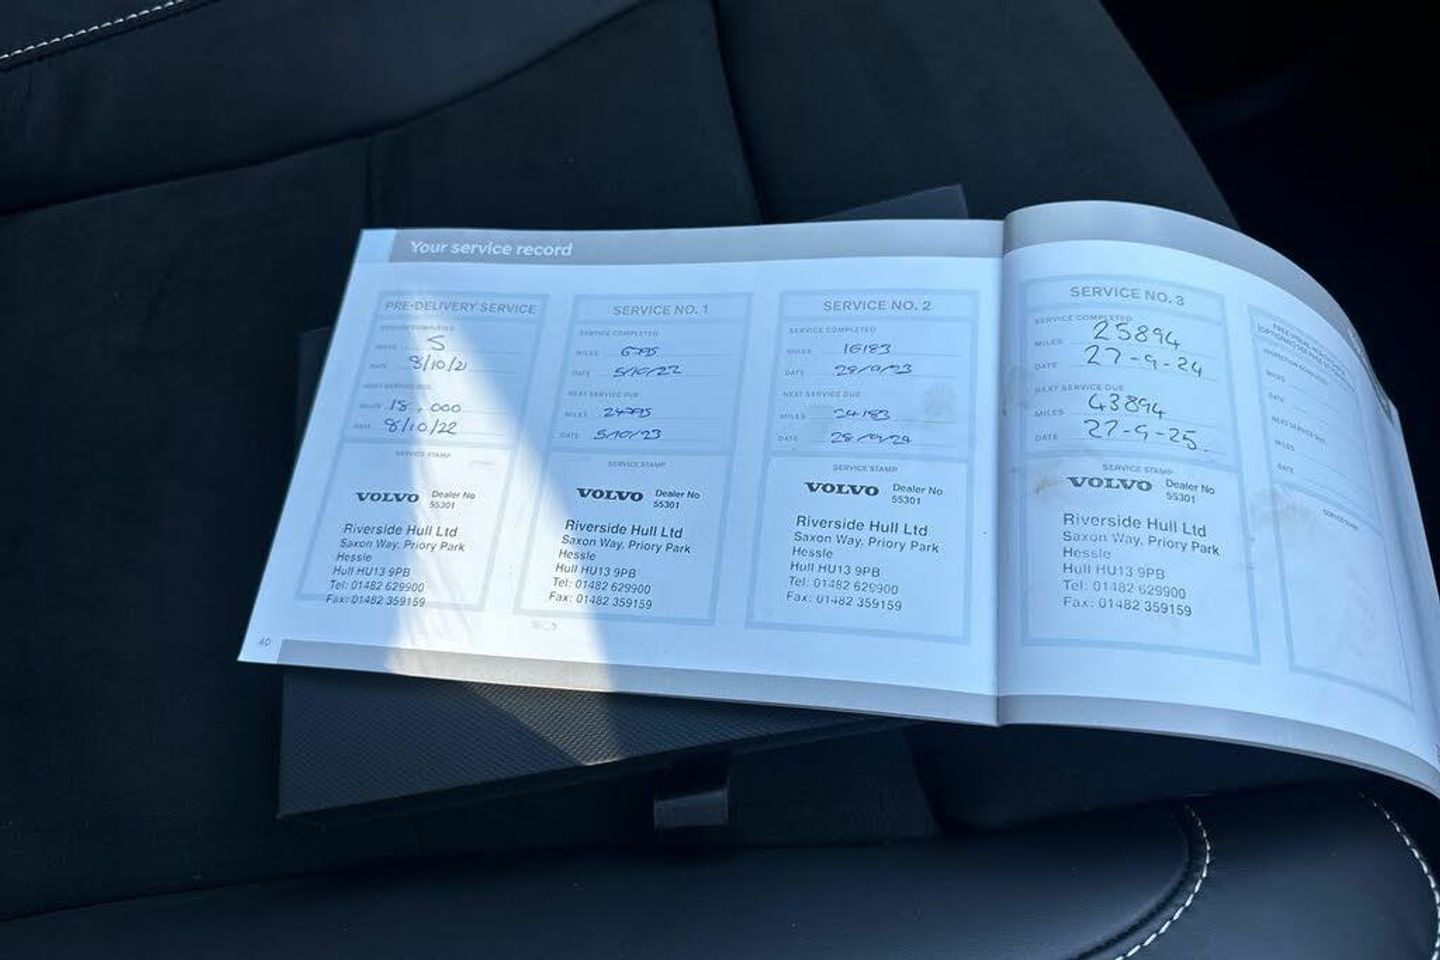 Your service record
PRE-DELIVERY SERVICE
SERVICE COMPLETED
MILES 5
DATE 8/10/21
NEXT SERVICE DUE
MILES 18,000
DATE 8/10/22
SERVICE STAMP
VOLVO Dealer No
55301
Riverside Hull Ltd
Saxon Way, Priory Park
Hessle
Hull HU13 9PB
Tel: 01482 629900
Fax: 01482 359159
SERVICE NO. 1
SERVICE COMPLETED
MILES 6795
DATE 5/10/22
NEXT SERVICE DUE
MILES 24795
DATE 5/10/23
SERVICE STAMP
VOLVO Dealer No
55301
Riverside Hull Ltd
Saxon Way, Priory Park
Hessle
Hull HU13 9PB
Tel: 01482 629900
Fax: 01482 359159
SERVICE NO. 2
SERVICE COMPLETED
MILES 16183
DATE 28/9/23
NEXT SERVICE DUE
MILES 34183
DATE 28/09/24
SERVICE STAMP
VOLVO Dealer No
55301
Riverside Hull Ltd
Saxon Way, Priory Park
Hessle
Hull HU13 9PB
Tel: 01482 629900
Fax: 01482 359159
40
SERVICE NO. 3
SERVICE COMPLETED
MILES 25894
DATE 27-9-24
NEXT SERVICE DUE
MILES 43894
DATE 27-9-25.
SERVICE STAMP
VOLVO Dealer No
55301
Riverside Hull Ltd
Saxon Way, Priory Park
Hessle
Hull HU13 9PB
Tel: 01482 629900
Fax: 01482 359159
MILES
DATE
NEXT SERVICE DUE
MILES
DATE
SERVICE STAMP